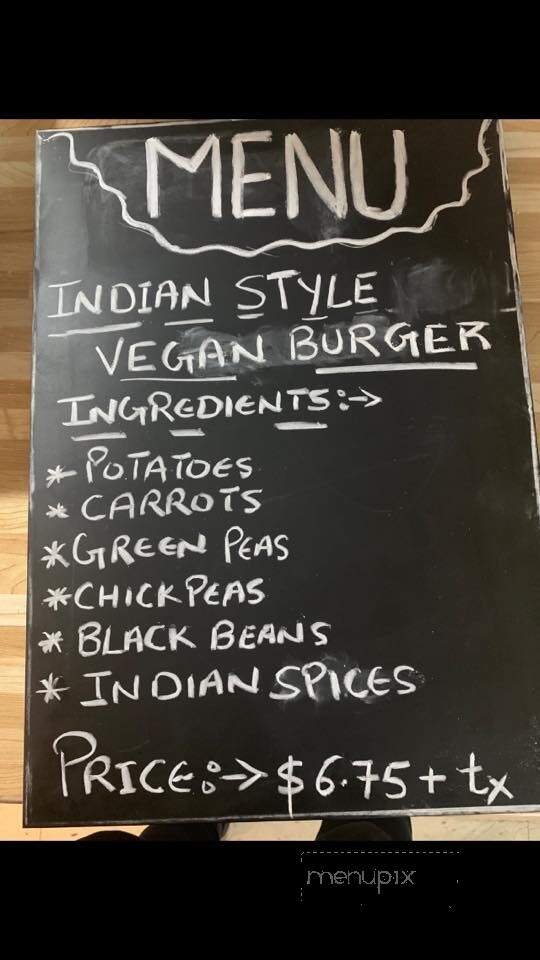 MENU
INDIAN STYLE
VEGAN BURGER
INGREDIENTS:→
* POTATOES
* CARROTS
* GREEN PEAS
* CHICKPEAS
* BLACK BEANS
* INDIAN SPICES
PRICE:→ $6.75 + tx
menupix